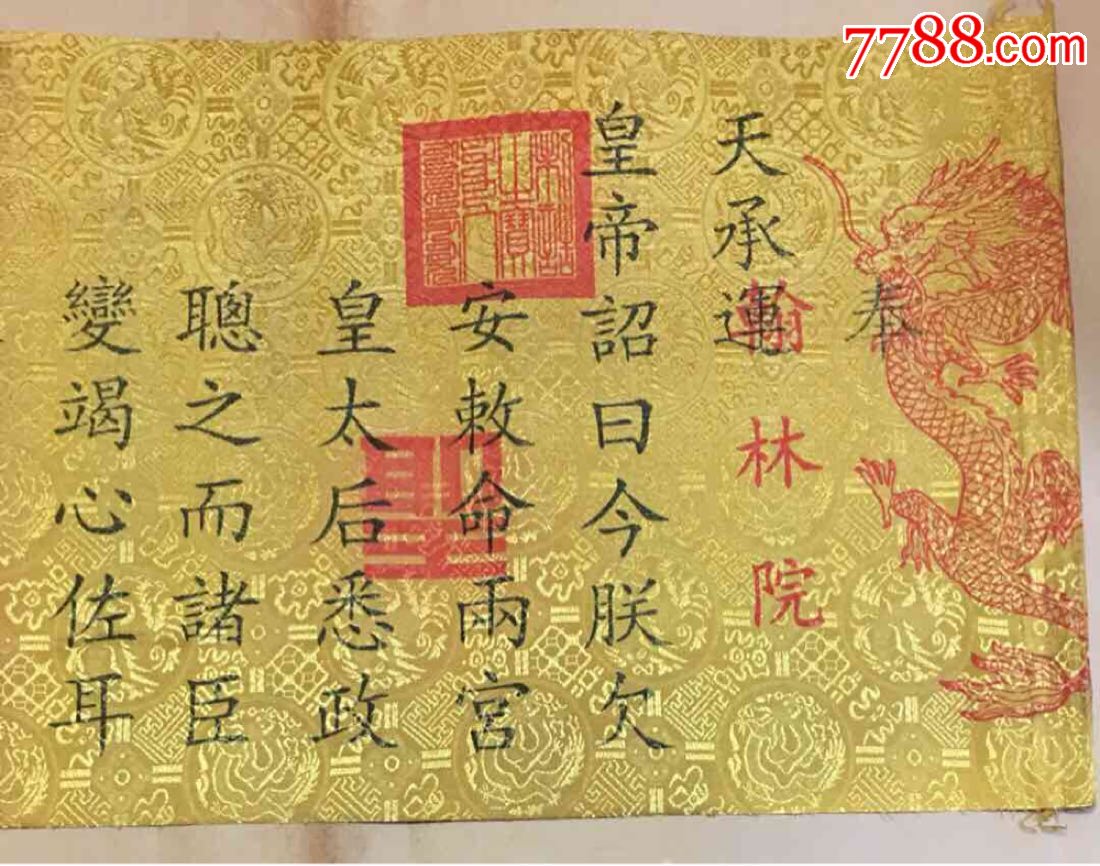 7788.com
奉
天承運
翰林院
皇帝詔曰今朕欠
安敕命兩宮
皇太后悉政
聰之而諸臣
變竭心佐耳
聖